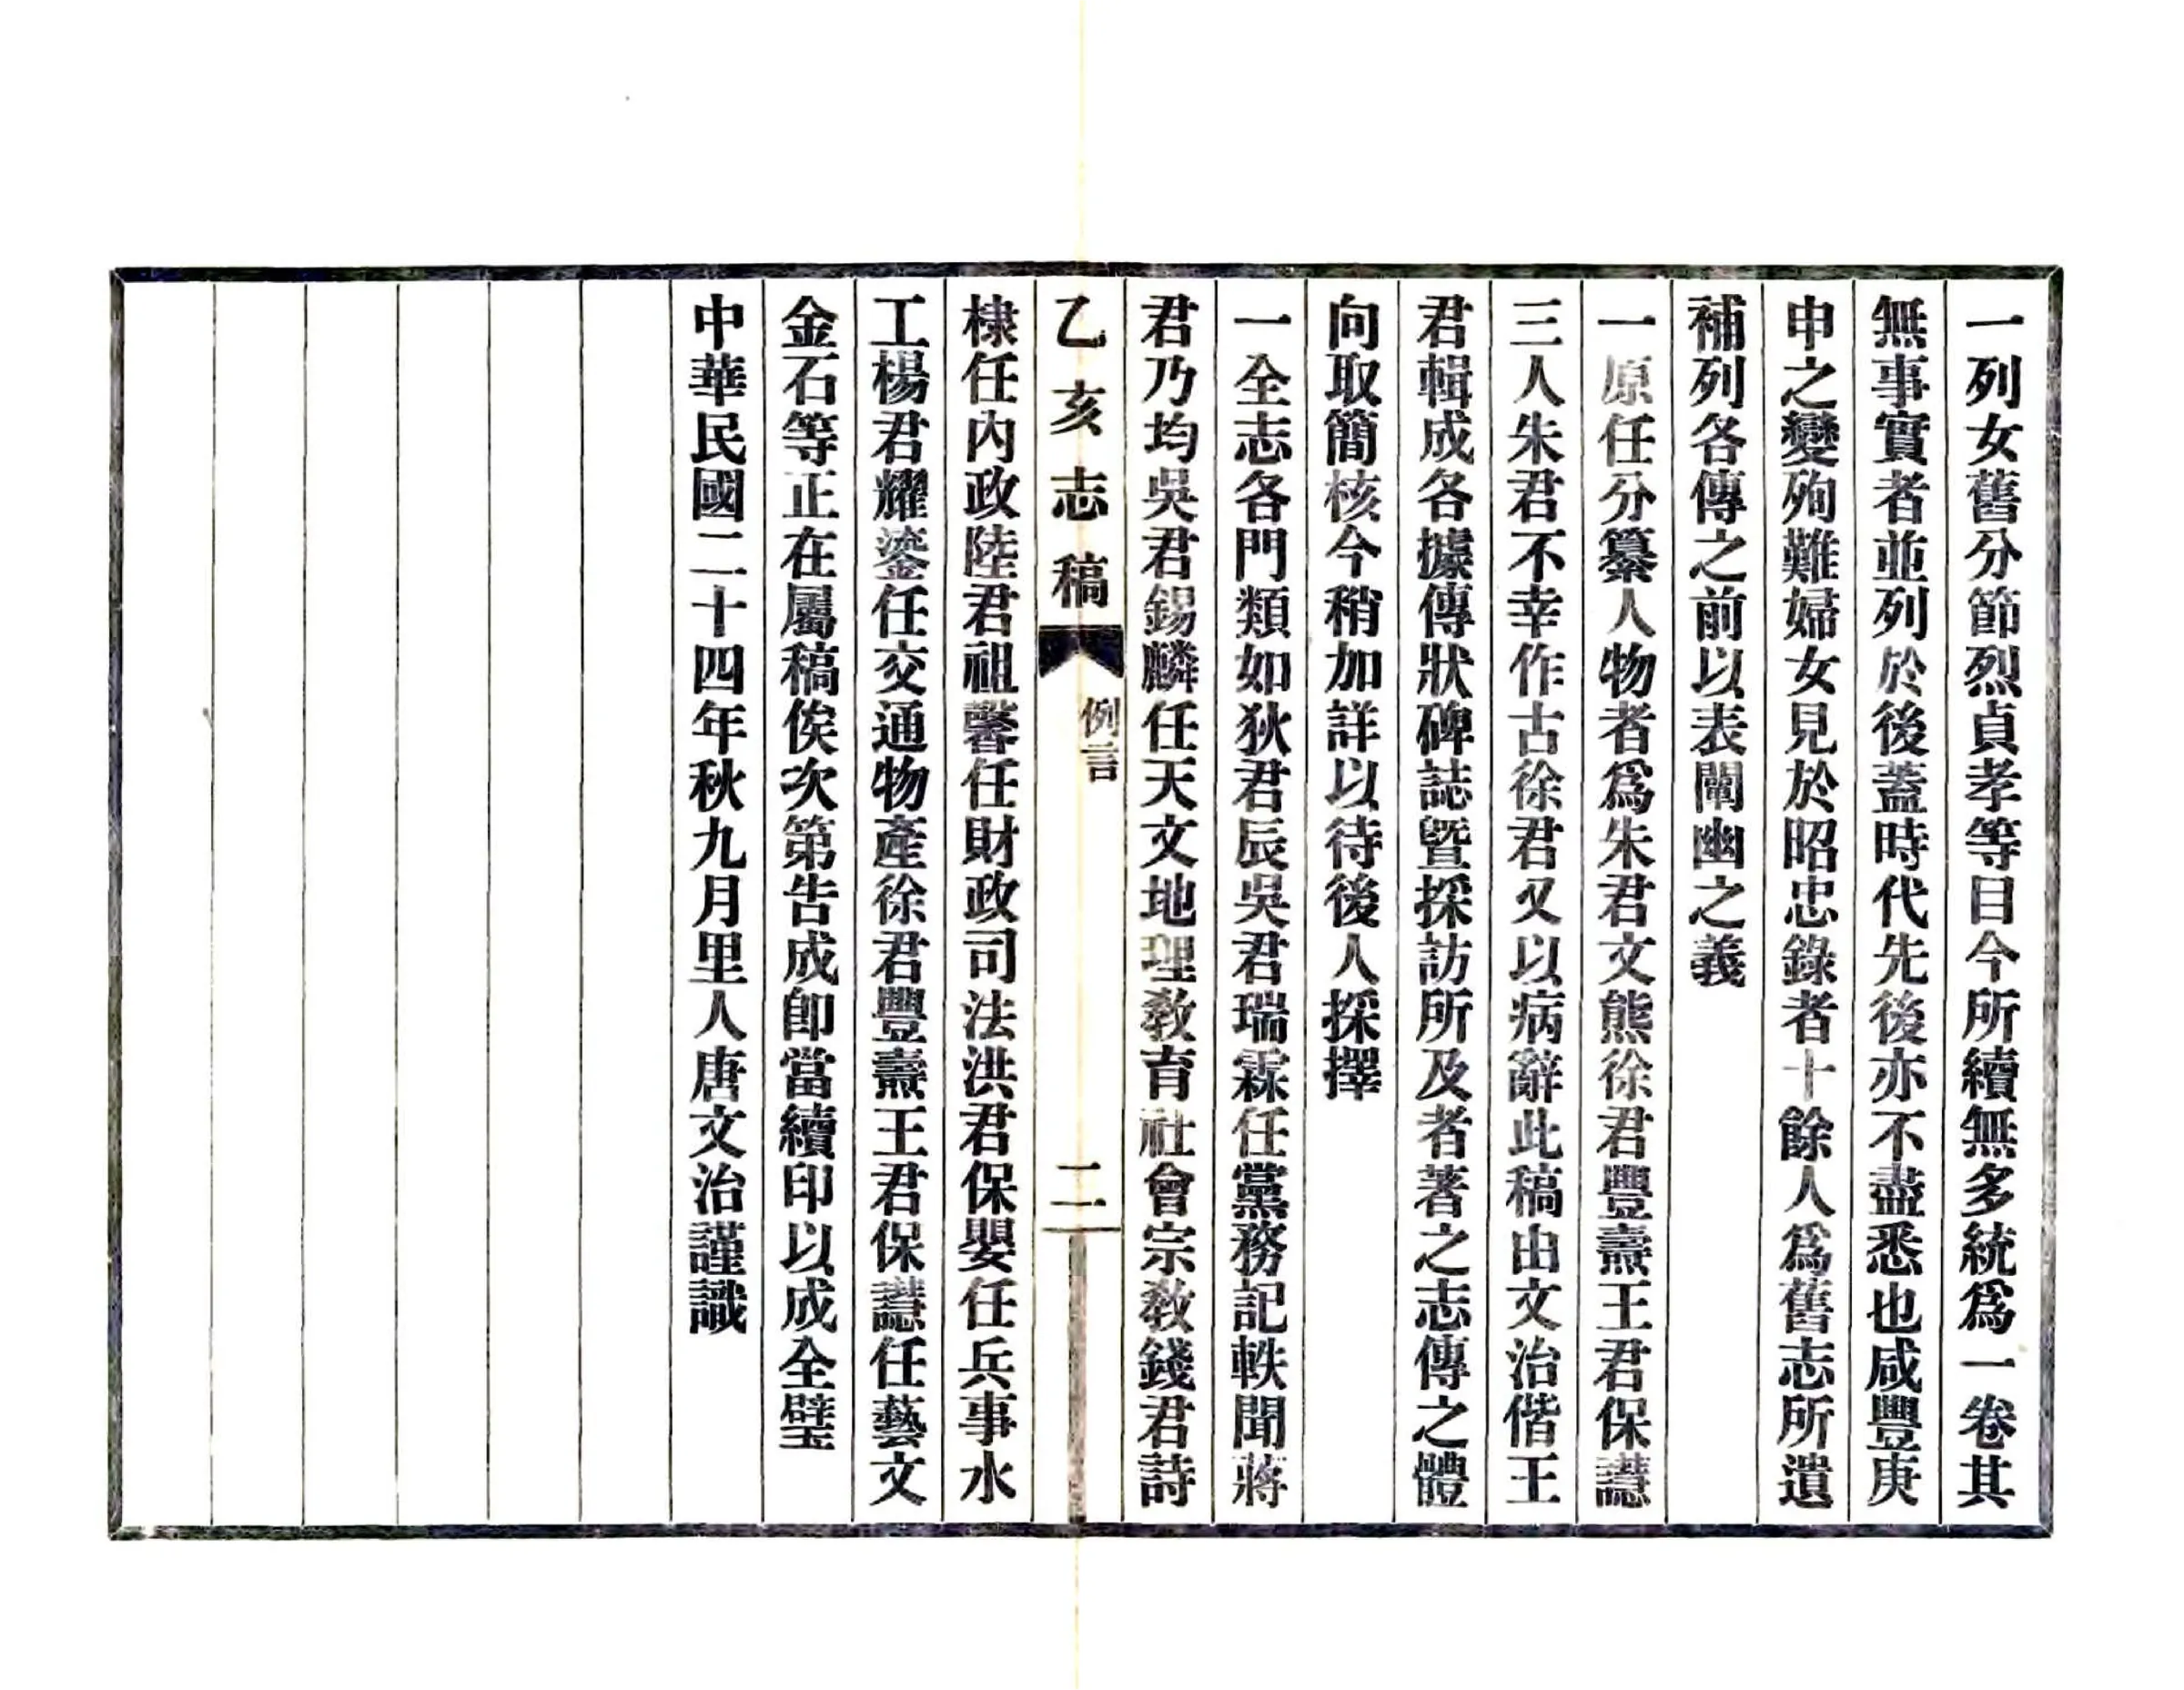 一列女舊分節烈貞孝等目今所續無多統爲一卷其
無事實者並列於後蓋時代先後亦不盡悉也咸豐庚
申之變殉難婦女見於昭忠錄者十餘人爲舊志所遺
補列各傳之前以表闡幽之義
一原任分纂人物者爲朱君文熊徐君豐壽王君保譿
三人朱君不幸作古徐君又以病辭此稿由文治偕王
君輯成各據傳狀碑誌曁採訪所及者著之志傳之體
向取簡核今稍加詳以待後人採擇
一全志各門類如狄君辰吳君瑞霖任黨務記軼聞蔣
君乃均吳君錫麟任天文地理敎育社會宗敎錢君詩
乙亥志稿
例言
二
棣任內政陸君祖馨任財政司法洪君保嬰任兵事水
工楊君耀鎏任交通物產徐君豐壽王君保譿任藝文
金石等正在屬稿俟次第告成卽當續印以成全璧
中華民國二十四年秋九月里人唐文治謹識